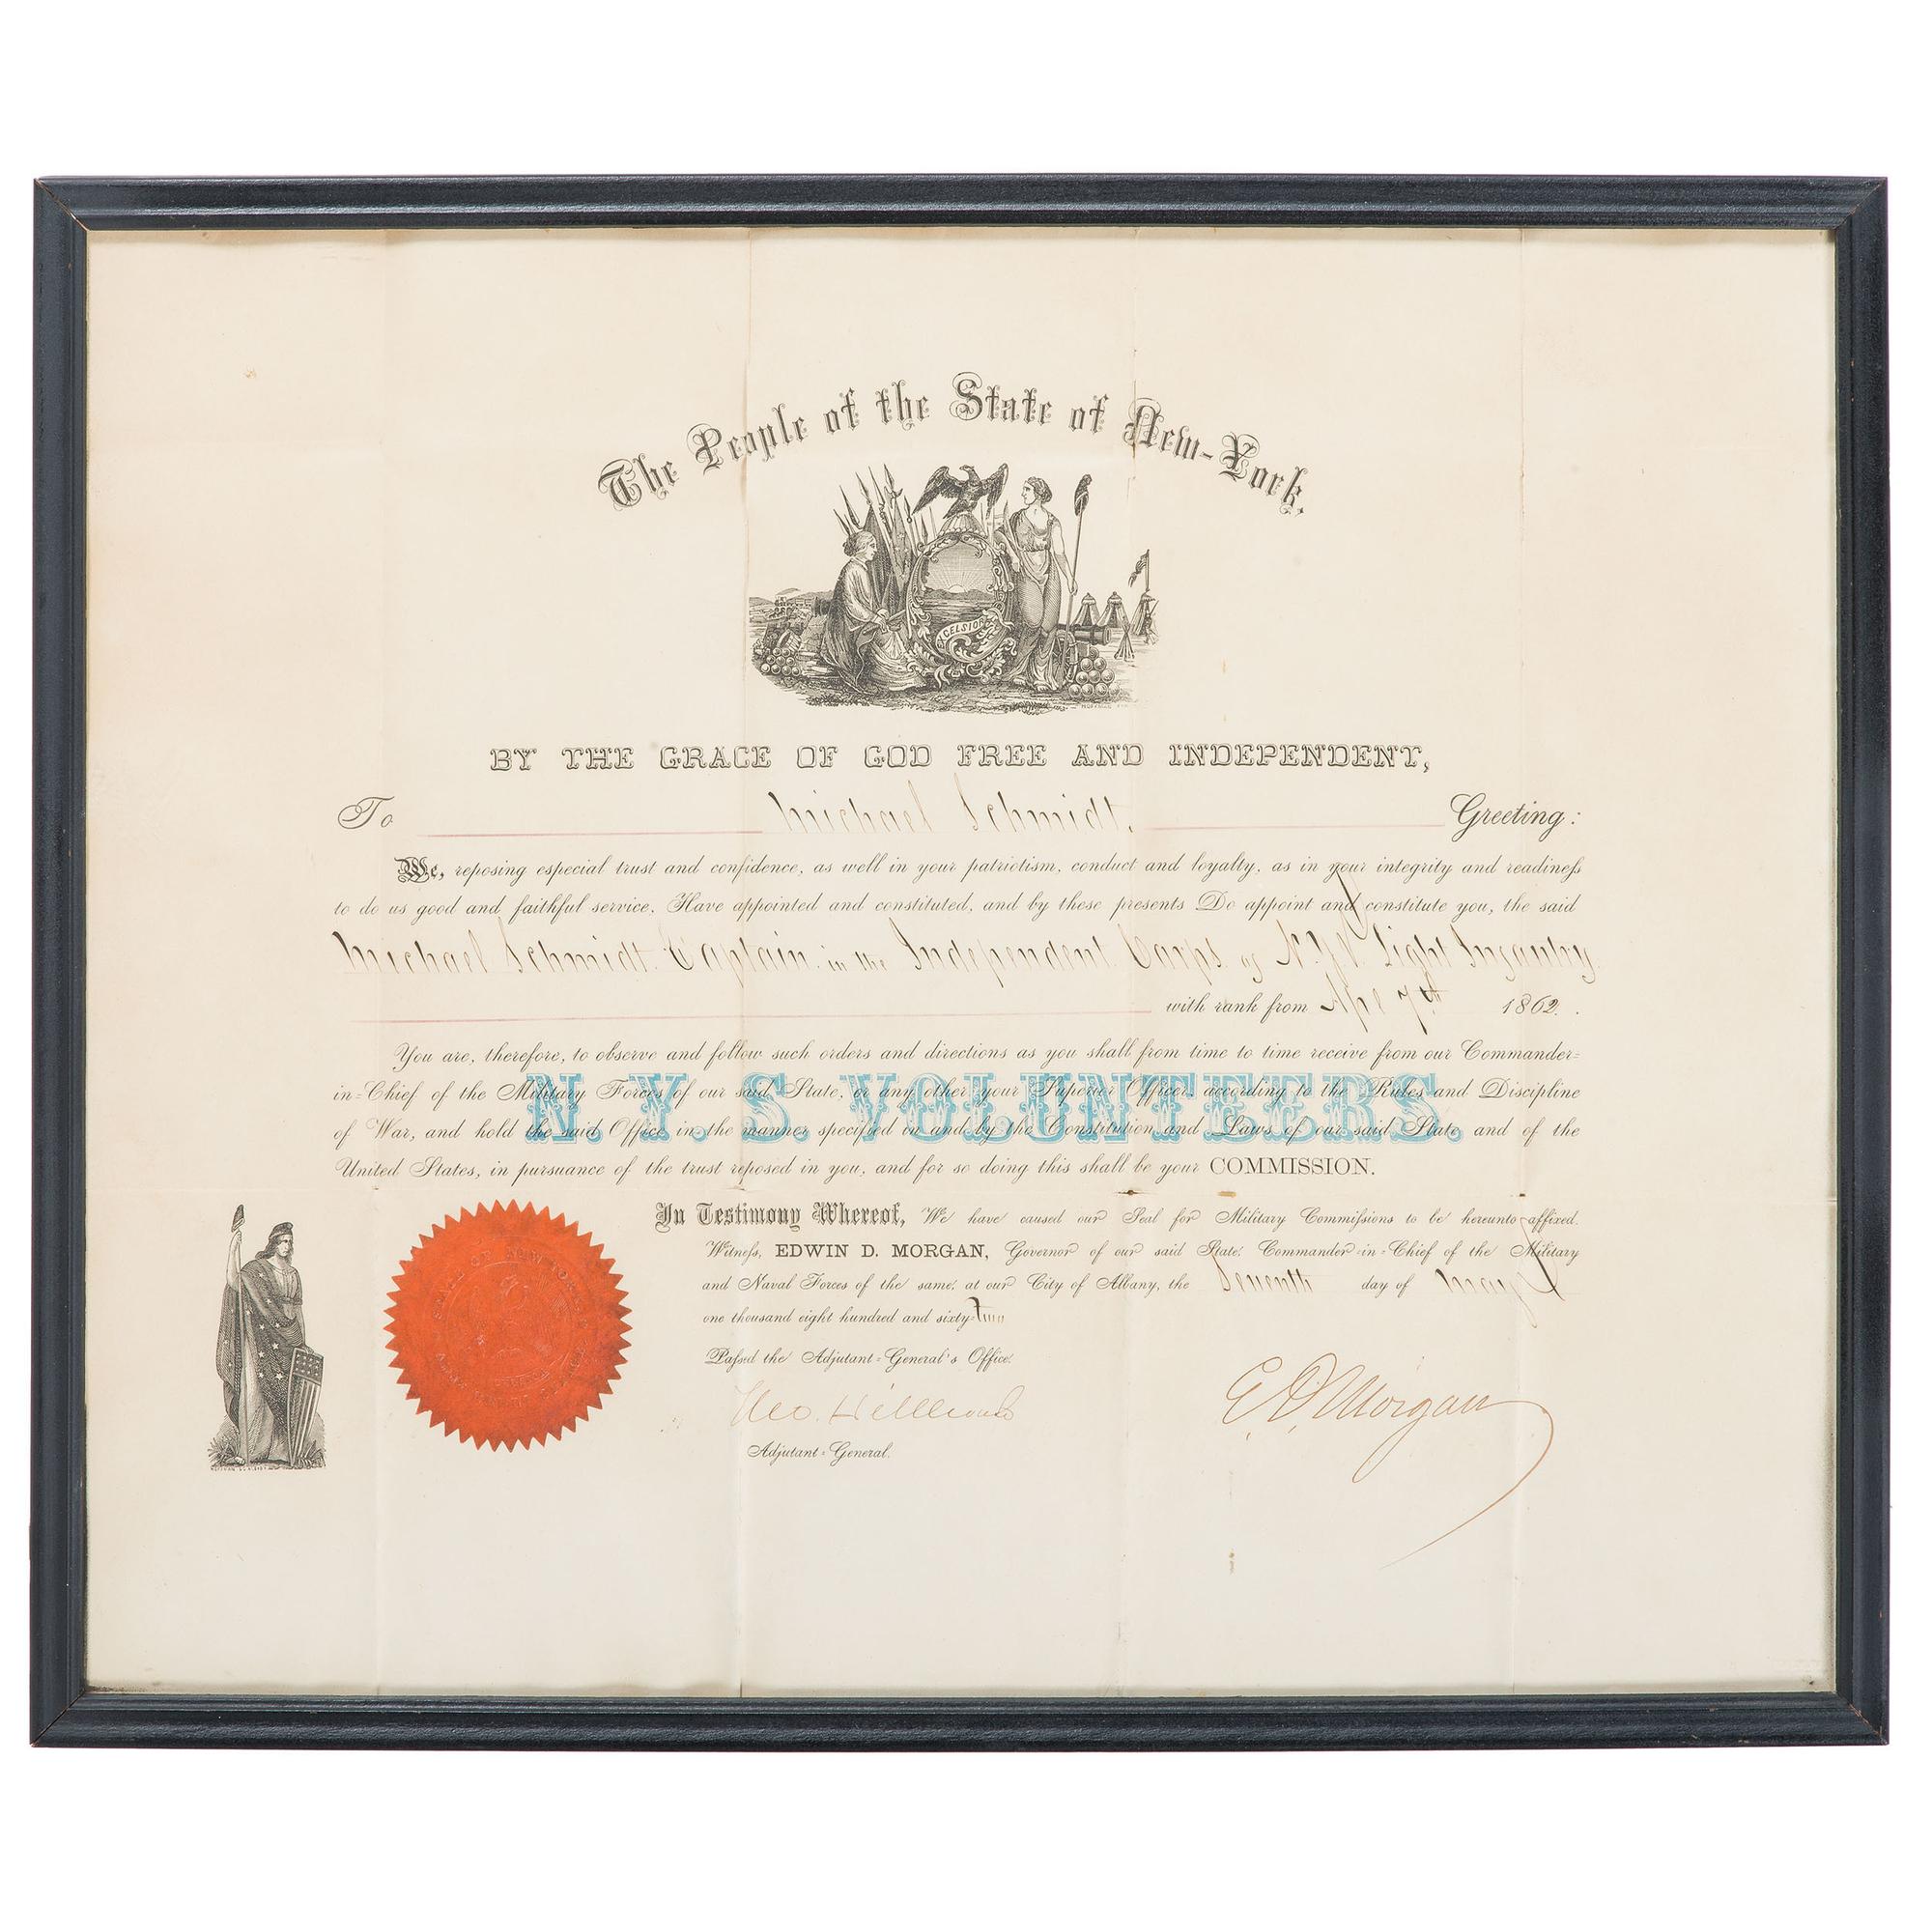 The People of the State of New-York,
EXCELSIOR
BY THE GRACE OF GOD FREE AND INDEPENDENT,
To Michael Schmidt, Greeting:
We, reposing especial trust and confidence, as well in your patriotism, conduct and loyalty, as in your integrity and readiness
to do us good and faithful service, Have appointed and constituted, and by these presents Do appoint and constitute you, the said
Michael Schmidt Captain in the Independent Corps of N.Y.V. Light Infantry
with rank from Apl 7th 1862.
You are, therefore, to observe and follow such orders and directions as you shall from time to time receive from our Commander=
in=Chief of the Military Forces of our said State, or any other your Superior Officer, according to the Rules and Discipline
N.Y.S. VOLUNTEERS.
of War, and hold the said Office in the manner specified in and by the Constitution and Laws of our said State and of the
United States, in pursuance of the trust reposed in you, and for so doing this shall be your COMMISSION.
In Testimony Whereof, We have caused our Seal for Military Commissions to be hereunto affixed.
Witness, EDWIN D. MORGAN, Governor of our said State, Commander-in=Chief of the Military
and Naval Forces of the same, at our City of Albany, the Seventh day of May
one thousand eight hundred and sixty-two
Passed the Adjutant=General's Office.
Adjutant=General.
E. D. Morgan